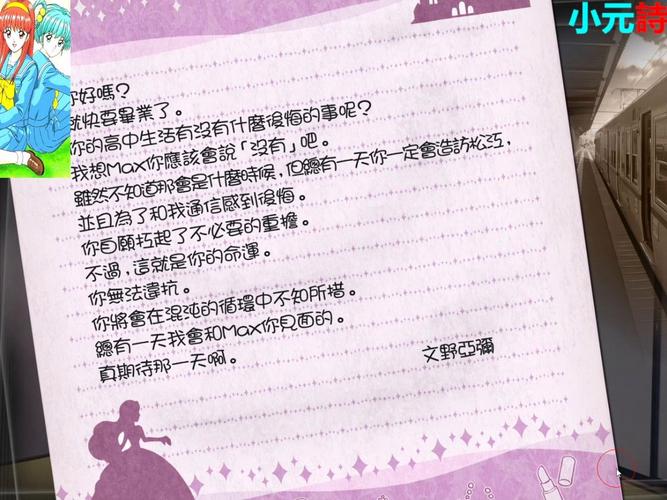 小元詩
你好嗎？
就快要畢業了。
你的高中生活有沒有什麼後悔的事呢？
我想Max你應該會說「沒有」吧。
雖然不知道那會是什麼時候，但總有一天你一定會造訪松江，
並且為了和我通信感到後悔。
你自願扛起了不必要的重擔。
不過，這就是你的命運。
你無法違抗。
你將會在混沌的循環中不知所措。
總有一天我會和Max你見面的。
真期待那一天啊。
文野亞彌